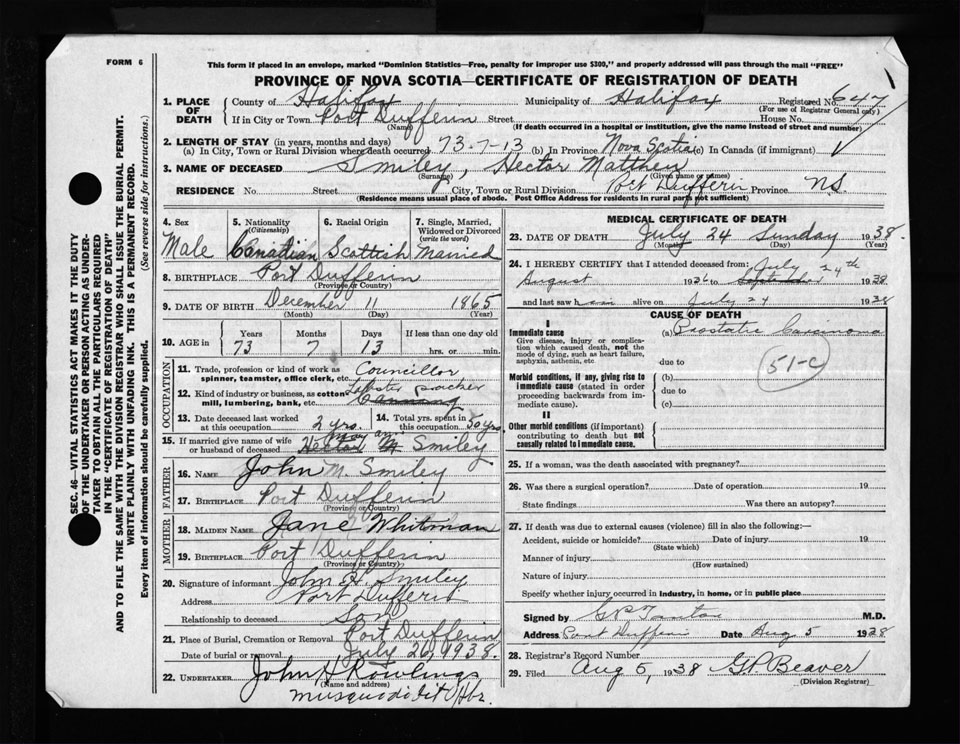 FORM 6
This form if placed in an envelope, marked "Dominion Statistics—Free, penalty for improper use $300," and properly addressed will pass through the mail "FREE"
PROVINCE OF NOVA SCOTIA—CERTIFICATE OF REGISTRATION OF DEATH
SEC. 46—VITAL STATISTICS ACT MAKES IT THE DUTY
OF THE UNDERTAKER OR PERSON ACTING AS UNDER-
TAKER TO OBTAIN ALL THE PARTICULARS REQUIRED
IN THE "CERTIFICATE OF REGISTRATION OF DEATH"
AND TO FILE THE SAME WITH THE DIVISION REGISTRAR WHO SHALL ISSUE THE BURIAL PERMIT.
WRITE PLAINLY WITH UNFADING INK. THIS IS A PERMANENT RECORD.
Every item of information should be carefully supplied. (See reverse side for instructions.)
1. PLACE OF DEATH County of Halifax Municipality of Halifax Registered No. 647
(For use of Registrar General only)
If in City or Town Port Dufferin Street House No.
(Name) (If death occurred in a hospital or institution, give the name instead of street and number)
2. LENGTH OF STAY (in years, months and days)
(a) In City, Town or Rural Division where death occurred 73-7-13 (b) In Province Nova Scotia (c) In Canada (if immigrant)
3. NAME OF DECEASED Smiley, Hector Matthew
(Surname) (Given name or names)
RESIDENCE No. Street City, Town or Rural Division Port Dufferin Province N.S.
(Residence means usual place of abode. Post Office Address for residents in rural parts not sufficient)
4. Sex 5. Nationality (Citizenship) 6. Racial Origin 7. Single, Married, Widowed or Divorced (write the word)
Male Canadian Scottish Married
8. BIRTHPLACE Port Dufferin
(Province or Country)
9. DATE OF BIRTH December 11 1865
(Month) (Day) (Year)
10. AGE in Years Months Days If less than one day old
73 7 13 hrs. or min.
OCCUPATION
11. Trade, profession or kind of work as spinner, teamster, office clerk, etc. Councillor
12. Kind of industry or business, as cotton mill, lumbering, bank, etc. lobster packer
13. Date deceased last worked at this occupation 2 yrs. 14. Total yrs. spent in this occupation 50 yrs
15. If married give name of wife or husband of deceased Smiley
FATHER
16. NAME John M. Smiley
17. BIRTHPLACE Port Dufferin
(Province or Country)
MOTHER
18. MAIDEN NAME Jane Whitman
19. BIRTHPLACE Port Dufferin
(Province or Country)
20. Signature of informant John H. Smiley
Address Port Dufferin
Relationship to deceased Son
21. Place of Burial, Cremation or Removal Port Dufferin
Date of burial or removal July 26, 1938.
22. UNDERTAKER John H Rowlings
(Name and address)
Musquodobit Hbr.
MEDICAL CERTIFICATE OF DEATH
23. DATE OF DEATH July 24 Sunday 1938.
(Month) (Day) (Year)
24. I HEREBY CERTIFY that I attended deceased from: July 24th
August 1936 September 1938
and last saw him alive on July 24 1938
CAUSE OF DEATH
I
Immediate cause (a) Prostatic Carcinoma
Give disease, injury or complication which caused death, not the mode of dying, such as heart failure, asphyxia, asthenia, etc. due to
51-c
Morbid conditions, if any, giving rise to immediate cause (stated in order proceeding backwards from immediate cause). (b)
due to
(c)
II
Other morbid conditions (if important) contributing to death but not causally related to immediate cause.
25. If a woman, was the death associated with pregnancy?
26. Was there a surgical operation? Date of operation 19
State findings Was there an autopsy?
27. If death was due to external causes (violence) fill in also the following:—
Accident, suicide or homicide? Date of injury 19
(State which)
Manner of injury
(How sustained)
Nature of injury
Specify whether injury occurred in industry, in home, or in public place
Signed by M.D.
Address Port Dufferin Date Aug 5 1938
28. Registrar's Record Number
29. Filed Aug 5, 1938 G.P. Beaver
(Division Registrar)